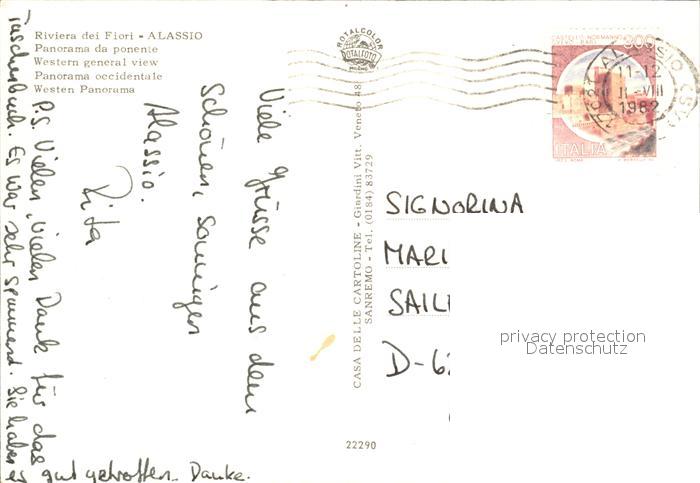 Riviera dei Fiori - ALASSIO
Panorama da ponente
Western general view
Panorama occidentale
Westen Panorama
Viele Grüsse aus dem
Schönen, sonnigen
Alassio.
Rita
P.S. Vielen, vielen Dank für das
Taschenbuch. Es war sehr spannend. Sie haben
es gut getroffen. Danke.
ROTALCOLOR
ROTALFOTO
MILANO
CASA DELLE CARTOLINE - Giardini Vitt. Veneto 48
SANREMO - Tel. (0184) 83729
22290
CASTELLO NORMANNO
ITALIA
11-12
1982
SIGNORINA
MARI
SAIL
D-62
privacy protection
Datenschutz